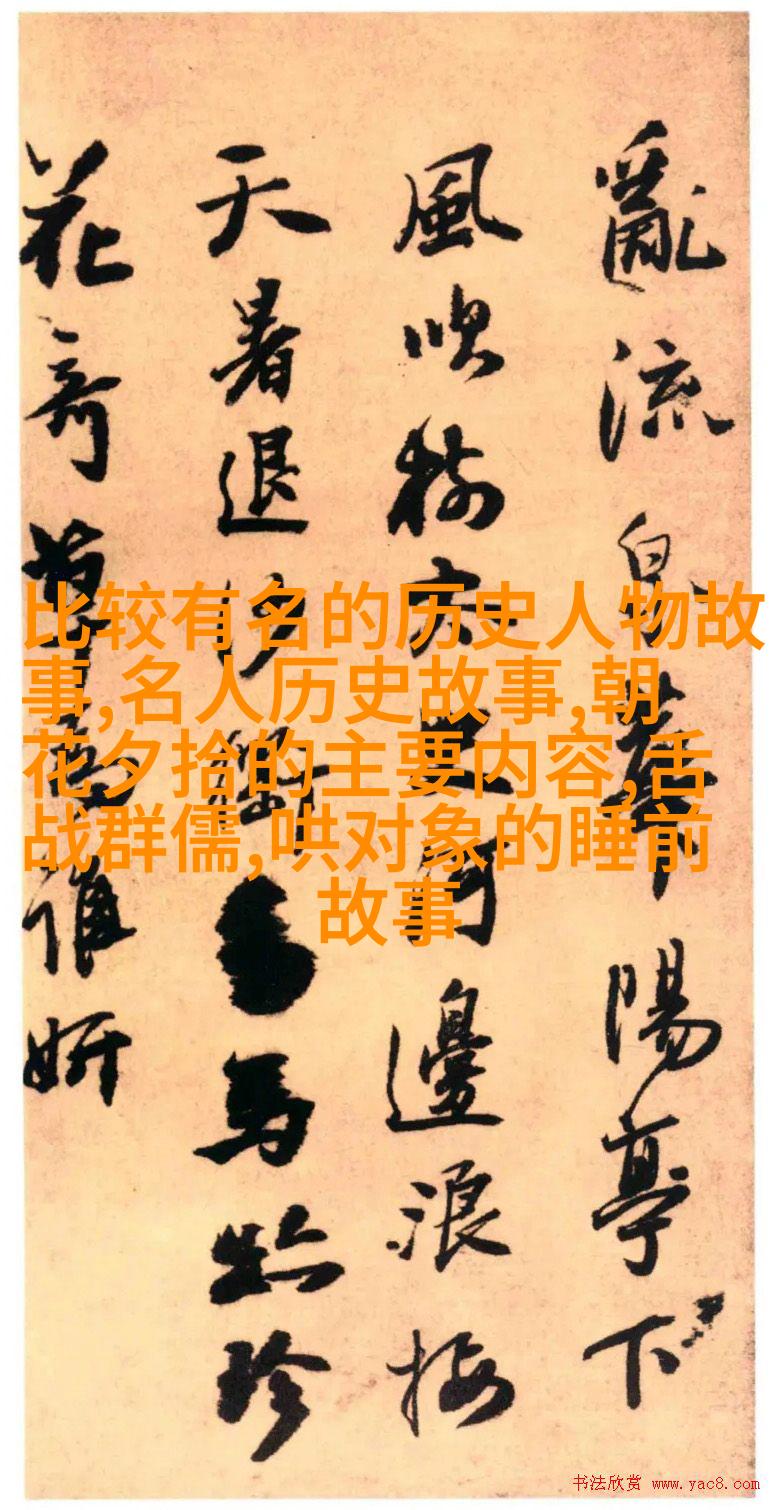 亂流泉陽亭下
風吹邊浪
天暑退馬珍
花奇誰妍
比较有名的历史人物故
事,名人历史故事,朝
花夕拾的主要内容,舌
战群儒,哄对象的睡前
故事
书法欣赏 www.yac8.com